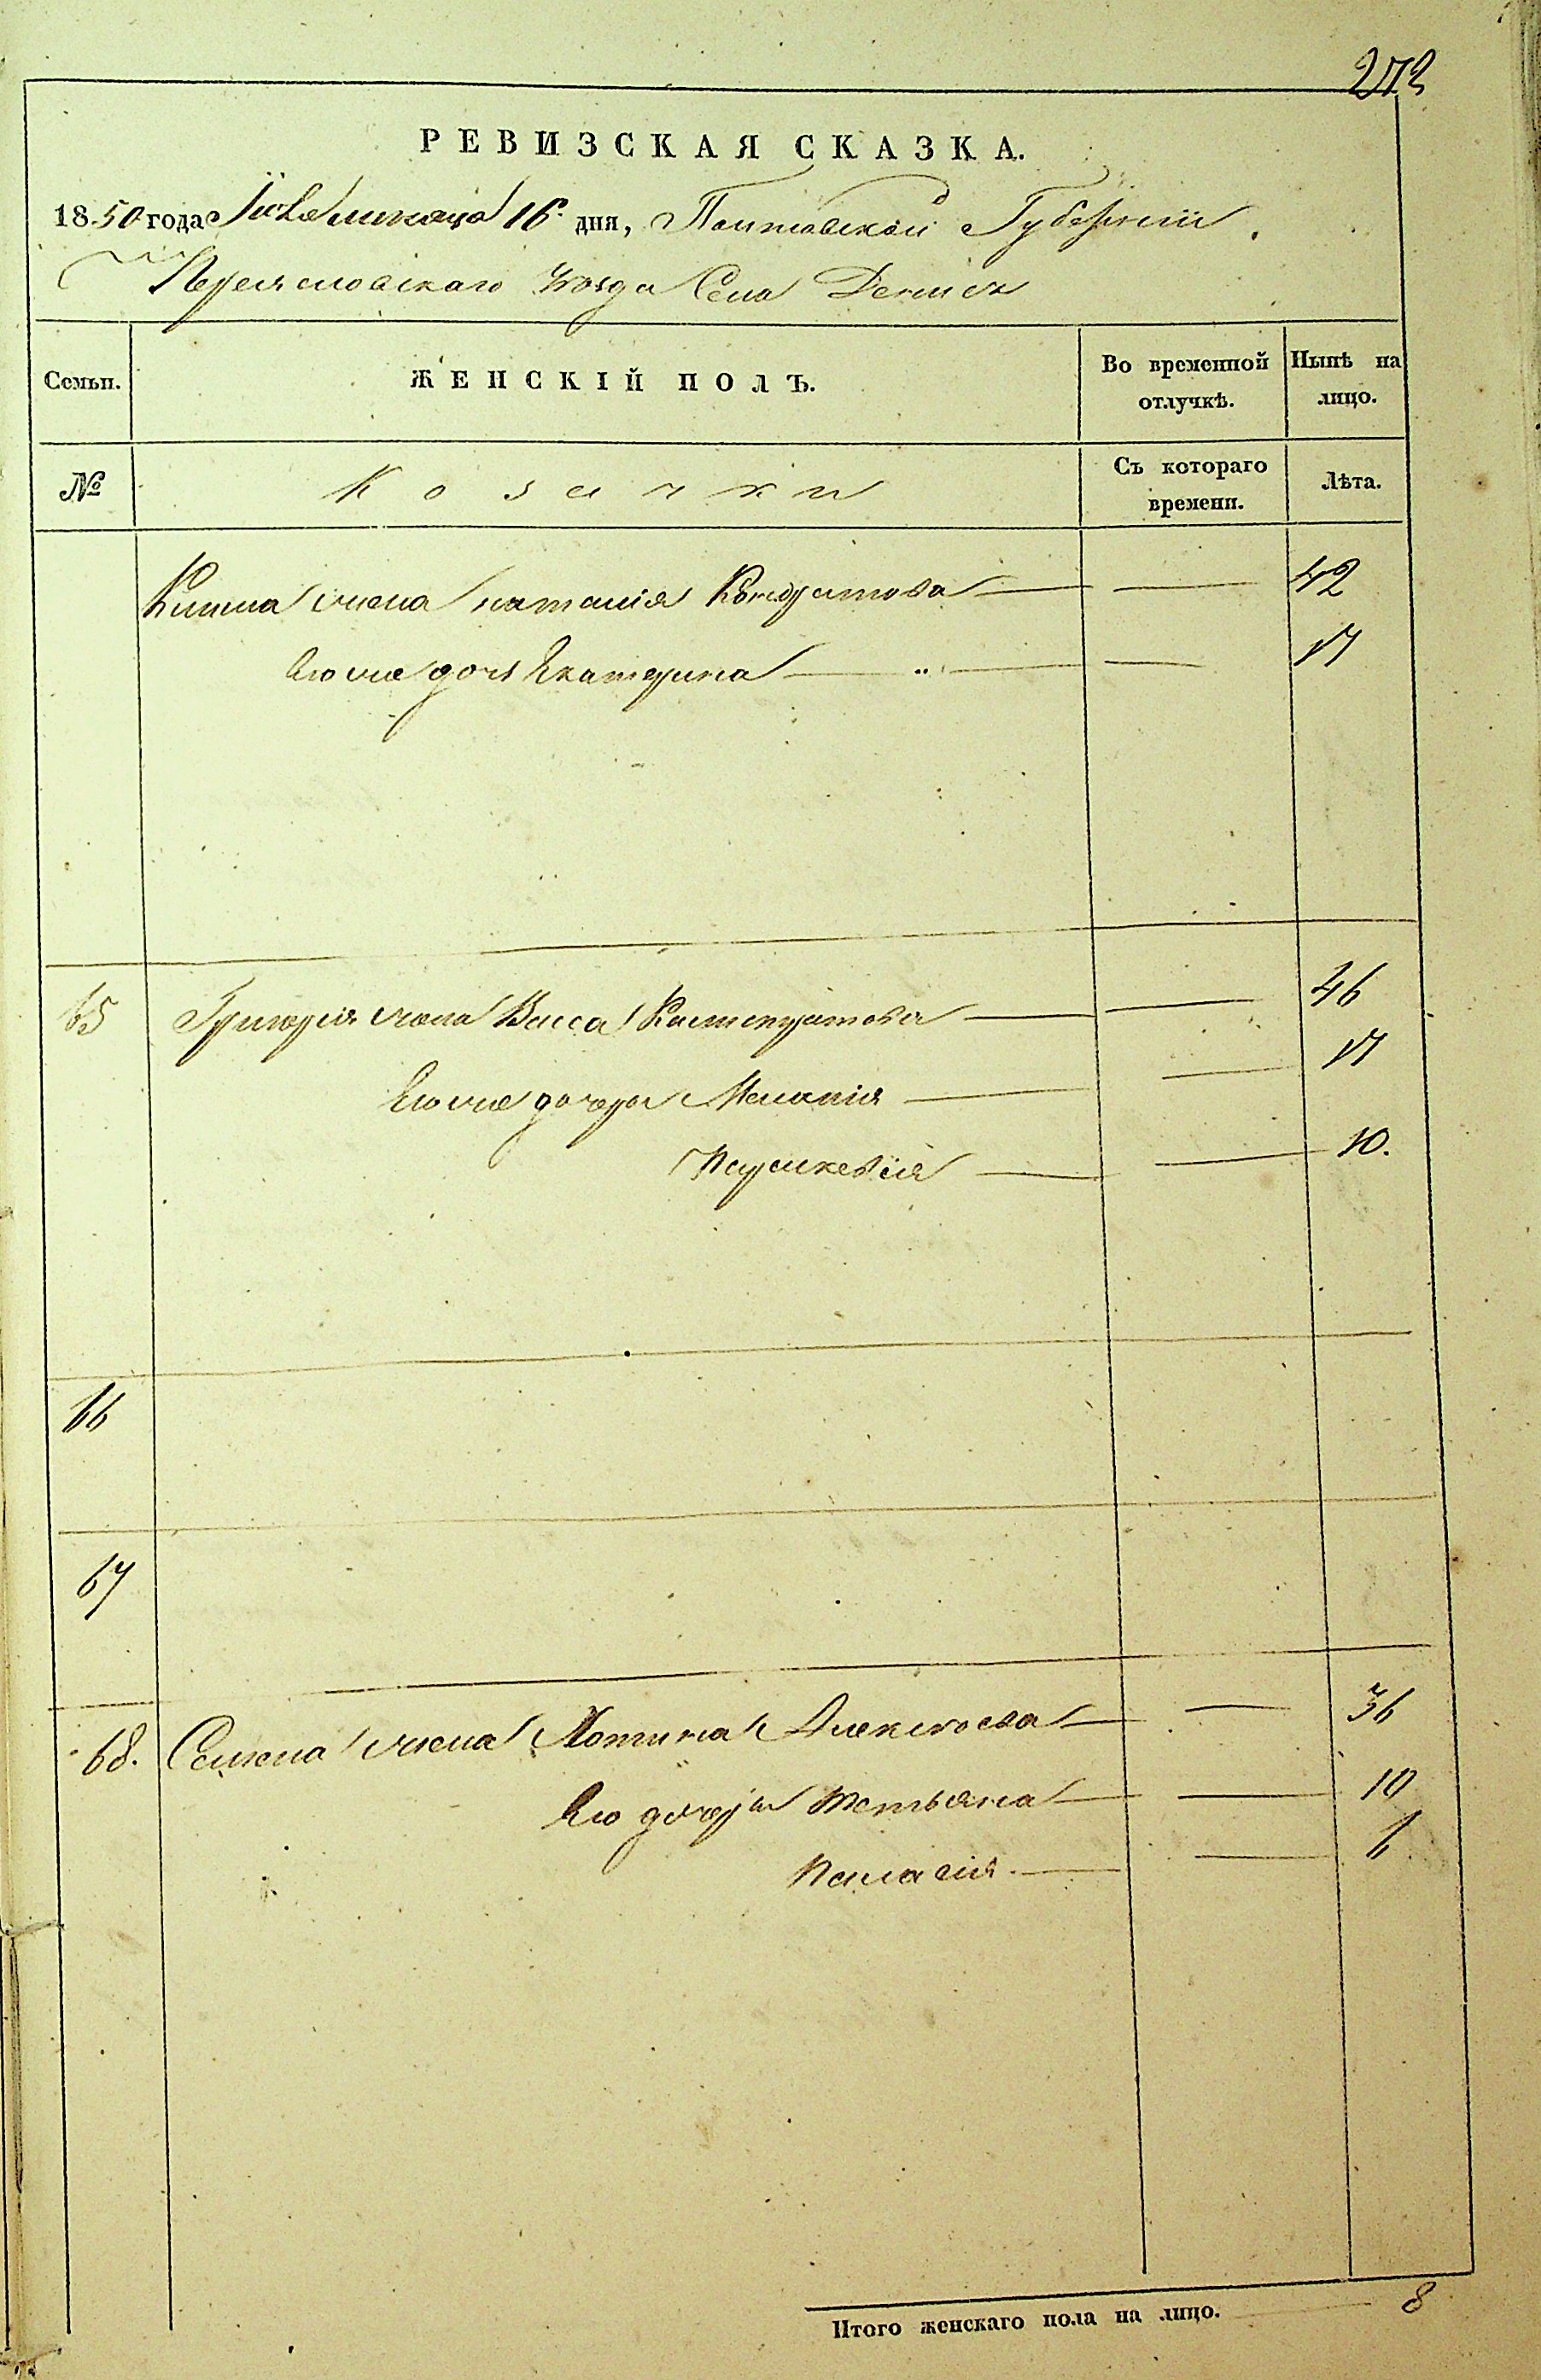 272
РЕВИЗСКАЯ СКАЗКА.
1850 года месяца 16 дня, Полтавской Губерніи
Переяславскаго Уезда Села Денис
Семьи.
ЖЕНСКІЙ ПОЛЪ.
Во временной отлучкѣ.
Нынѣ на лицо.
№
Козачки
Съ котораго времени.
Лѣта.
жена Наталія Кондратова — — 42
Его же дочь Екатерина — — 17
65 Григорія жена Васса Калистратова — — 46
Его же дочери Меланія — — 17
Параскевія — — 10.
66
67
68. Семена жена Мотина Алексеева — — 36
Его дочери Татьяна — — 10
Паласія — — 6
Итого женскаго пола на лицо. 8